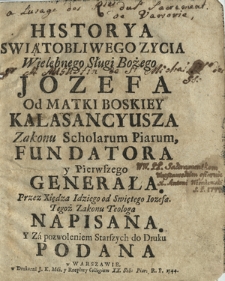 a Lusage des du S. Sacrement
de Varsovie
HISTORYA
SWIĄTOBLIWEGO ZYCIA
Wielebnego Sługi Bożego
JOZEFA
Od MATKI BOSKIEY
KALASANCYUSZA
Zakonu Scholarum Piarum,
FUNDATORA
y Pierwszego
GENERAŁA.
Przez Xiędza Idziego od Swiętego Iozefa.
Tegoż Zakonu Teologa
NAPISANA.
Y Zá pozwoleniem Starszych do Druku
PODANA
w WARSZAWIE,
w Drukarni J. K. Mći, y Rzeptey Collegium XX. Schol: Piar: R. P. 1744.